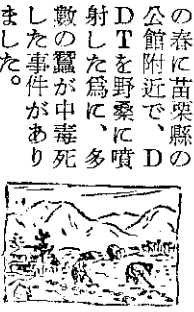 の春に苗栗縣の
公館附近で、D
DTを野桑に噴
射した爲に、多
數の蠶が中毒死
した事件があり
ました。